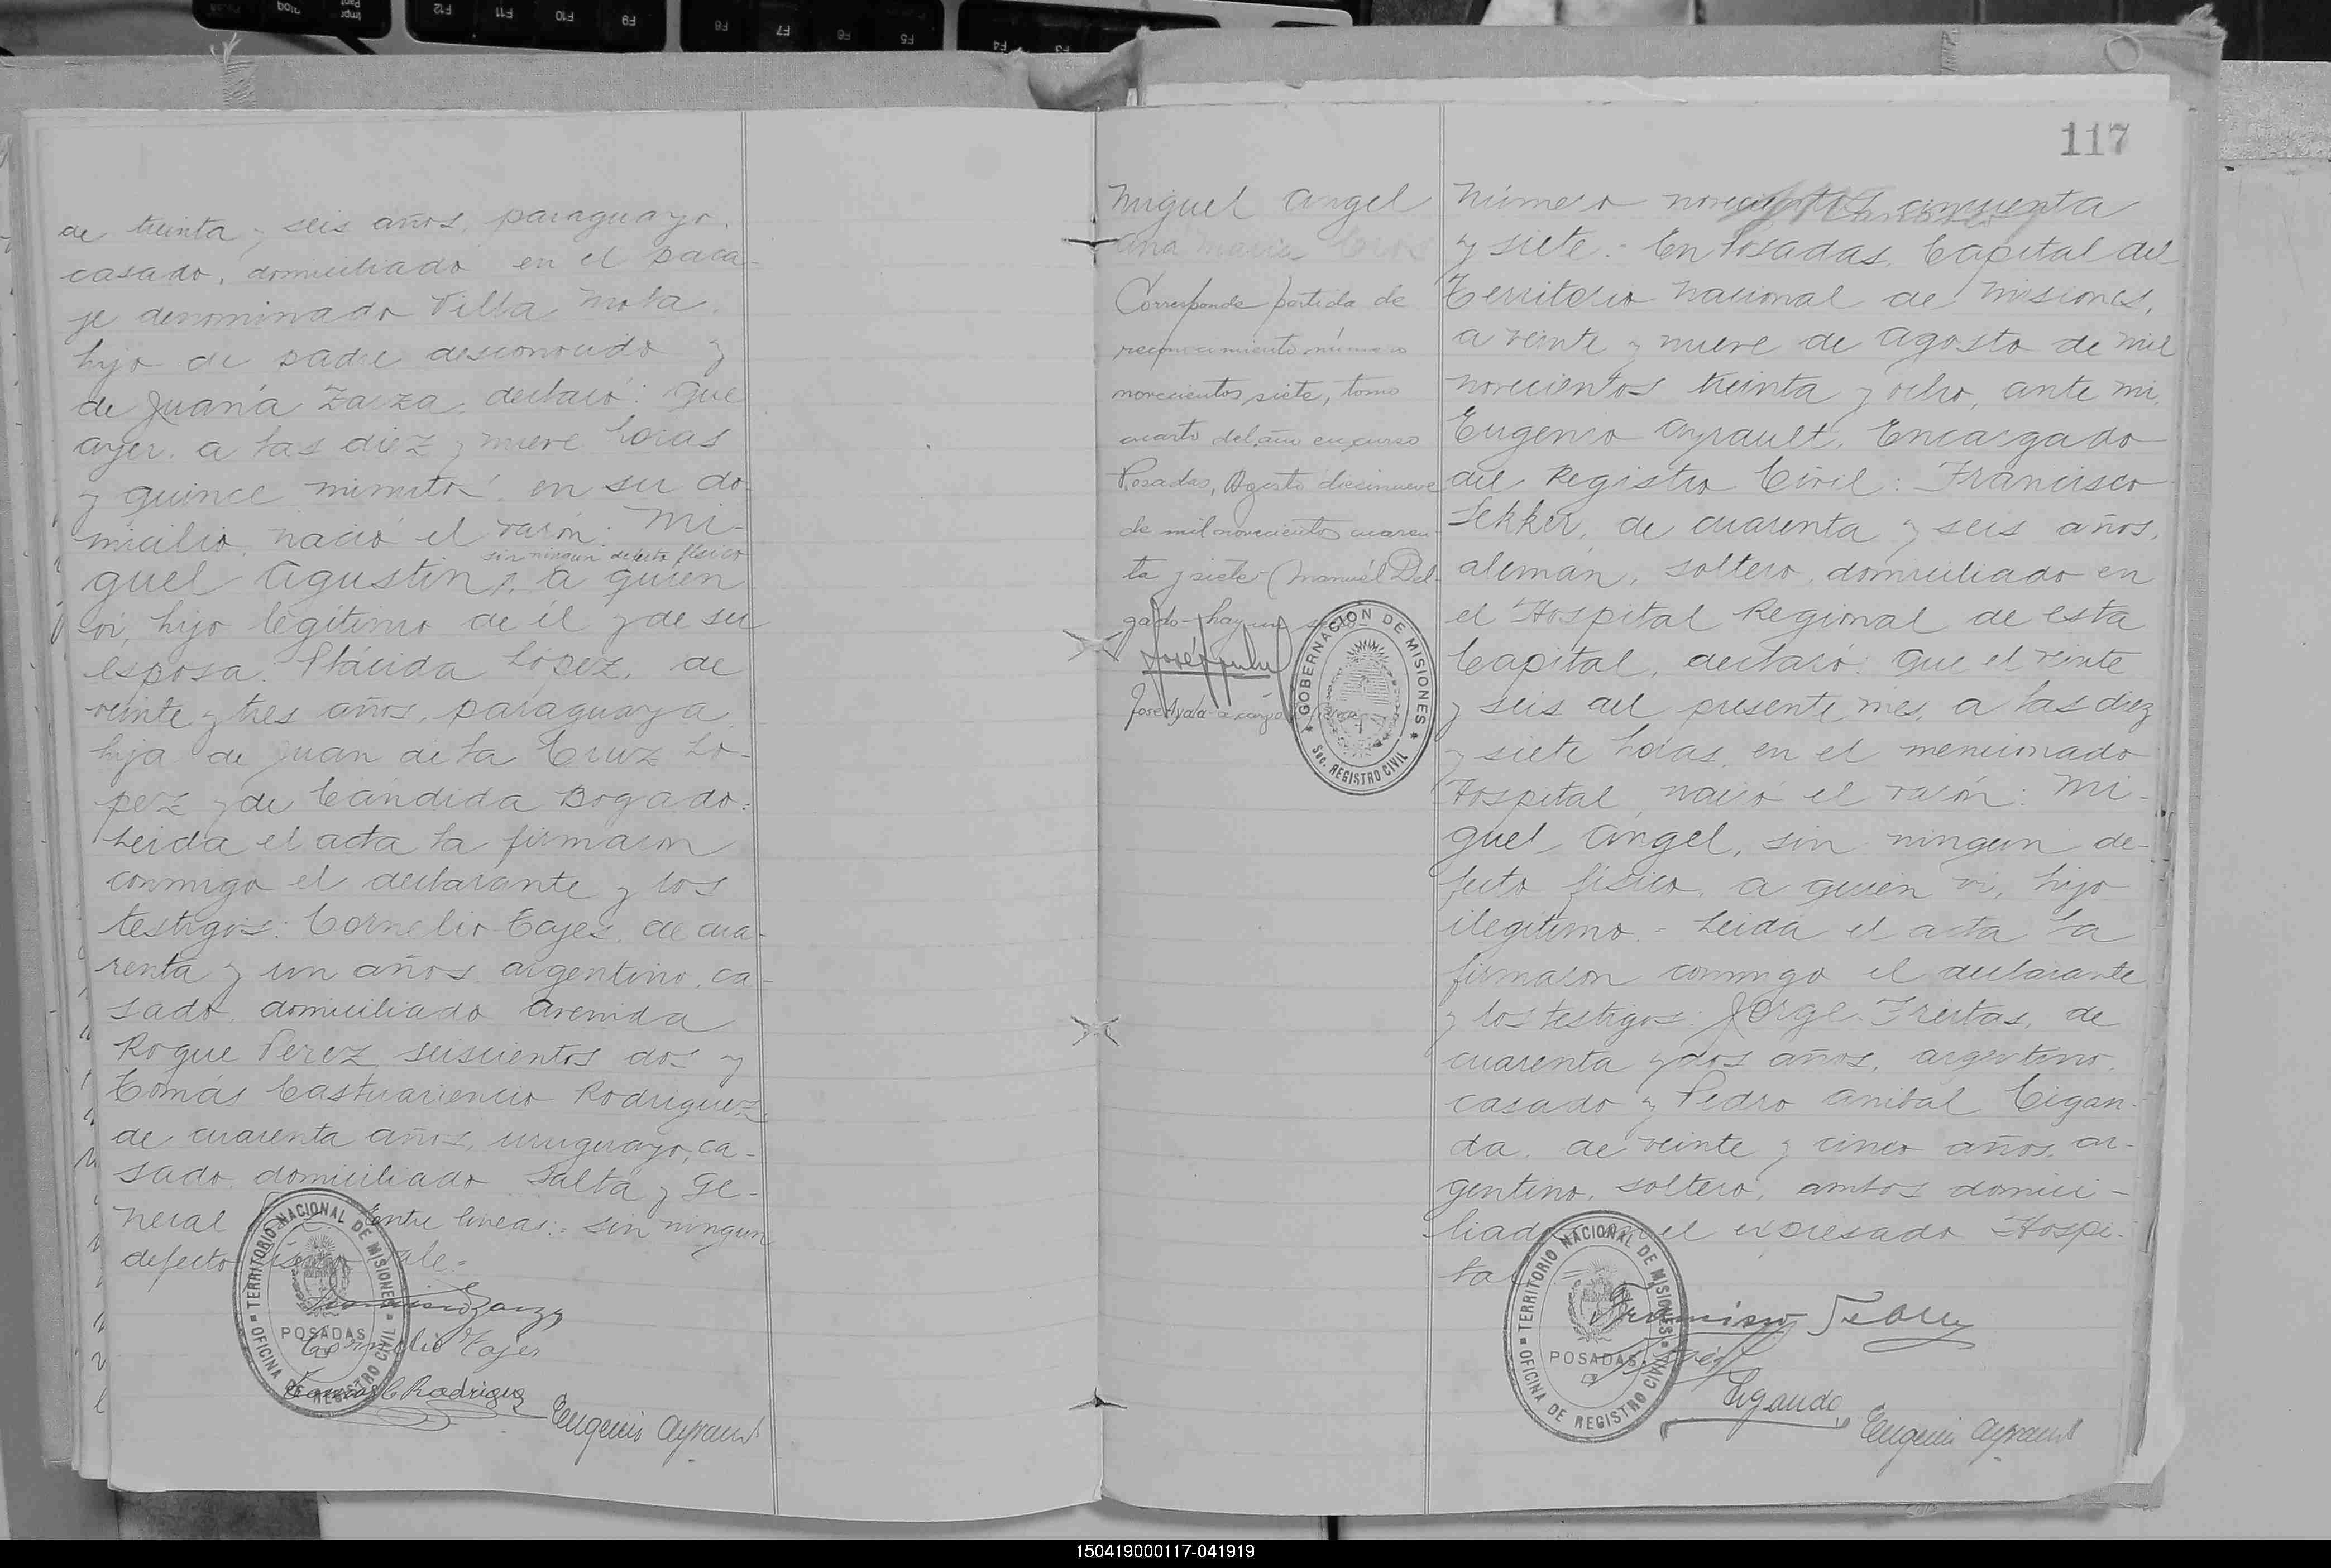 de treinta y seis años, paraguayo,
casado, domiciliado en el para-
je denominado Villa Mola,
hijo de padre desconocido y
de Juana Zarza, declaró: Que
ayer, a las diez y nueve horas
y quince minutos, en su do-
micilio, nació el varón: Mi-
sin ningun defecto físico
guel Agustin, a quien
vi, hijo legítimo de él y de su
esposa: Plácida López, de
veinte y tres años, paraguaya,
hija de Juan de la Cruz Ló-
pez y de Cándida Bogado.
Leida el acta la firmaron
conmigo el declarante y los
testigos: Cornelio Tajes, de cua-
renta y un años, argentino, ca-
sado, domiciliado Avenida
Roque Perez seiscientos dos y
Tomás Rodriguez,
de cuarenta años, uruguayo, ca-
sado, domiciliado Salta y Ge-
neral Entre lineas:- sin ningun
defecto físico vale.-
Zarza
Cornelio Tajes
Tomás C Rodriguez
Eugenio Ayrault
TERRITORIO NACIONAL DE MISIONES
POSADAS
OFICINA DE REGISTRO CIVIL
117
Miguel Angel
Ana Maria
Corresponde partida de
reconocimiento número
novecientos siete, tomo
cuarto del año en curso
Posadas, Agosto diecinueve
de mil novecientos cuaren-
ta y siete (Manuel Del-
gado- hay un sello
José Ayala- a cargo
GOBERNACION DE MISIONES
Sec. REGISTRO CIVIL
Número novecientos cincuenta
y siete:- En Posadas, Capital del
Territorio Nacional de Misiones,
a veinte y nueve de Agosto de mil
novecientos treinta y ocho, ante mi,
Eugenio Ayrault, Encargado
del Registro Civil: Francisco
Sekker, de cuarenta y seis años,
alemán, soltero, domiciliado en
el Hospital Regional de esta
Capital, declaró: Que el veinte
y seis del presente mes, a las diez
y siete horas, en el mencionado
Hospital, nació el varón: Mi-
guel Angel, sin ningun de-
fecto físico, a quien vi, hijo
ilegítimo.- Leida el acta la
firmaron conmigo el declarante
y los testigos: Jorge Freitas, de
cuarenta y dos años, argentino,
casado y Pedro Anibal Cigan-
da, de veinte y cinco años, ar-
gentino, soltero, ambos domici-
liados en el expresado Hospi-
tal
Francisco
Ciganda
Eugenio Ayrault
TERRITORIO NACIONAL DE MISIONES
POSADAS
OFICINA DE REGISTRO CIVIL
150419000117-041919